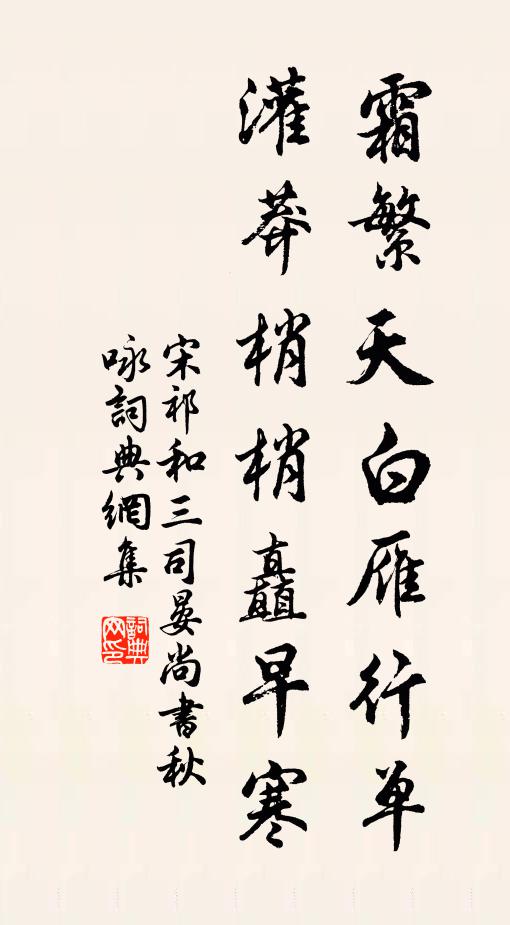 霜繁天白雁行单
灌莽梢梢矗早寒
宋祁和三司晏尚書秋
咏詞典網集
詞典网印